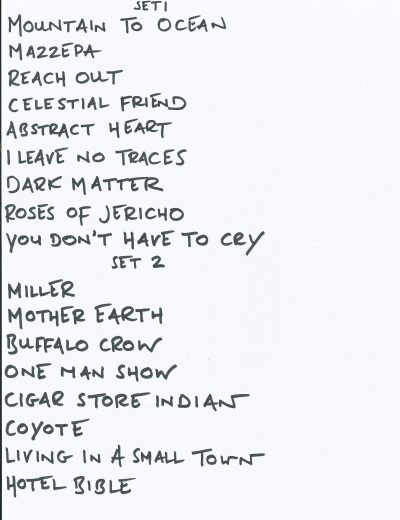 SET 1
MOUNTAIN TO OCEAN
MAZZEPA
REACH OUT
CELESTIAL FRIEND
ABSTRACT HEART
I LEAVE NO TRACES
DARK MATTER
ROSES OF JERICHO
YOU DON'T HAVE TO CRY
SET 2
MILLER
MOTHER EARTH
BUFFALO CROW
ONE MAN SHOW
CIGAR STORE INDIAN
COYOTE
LIVING IN A SMALL TOWN
HOTEL BIBLE